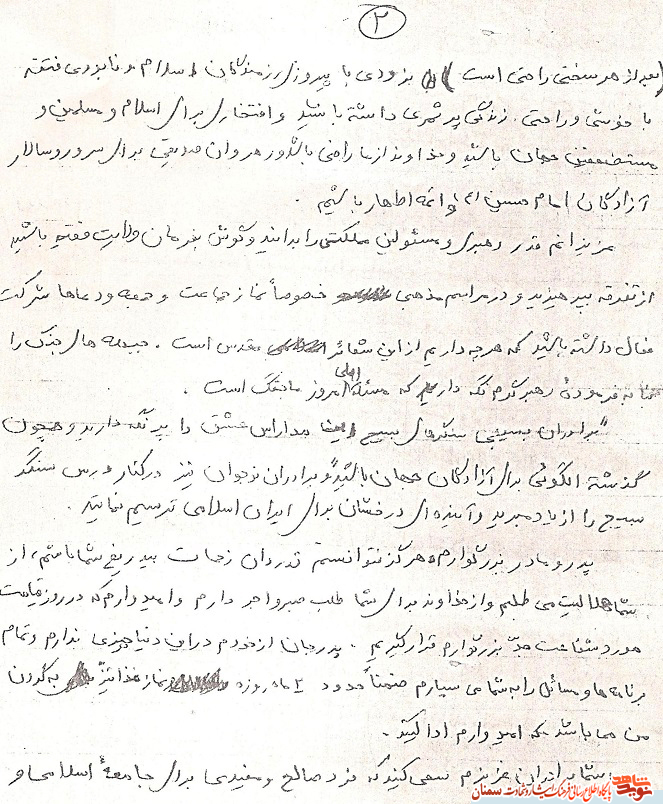 ۲
(بعد از هر سختی راحتی است) بزودی با پیروزی رزمندگان اسلام و نابودی فتنه
با خوشی و راحتی. زندگی پر ثمری داشته باشید و افتخاری برای اسلام و مسلمین و
مستضعفین جهان باشید و خداوند از ما راضی باشد و رهروان صدیقی برای سرور و سالار
آزادگان امام حسین (ع) و ائمه اطهار باشیم.
عزیزانم قدر رهبری و مسئولین مملکتی را بدانید و گوش بفرمان ولایت فقیه باشید
از تفرقه بپرهیزید و در مراسم مذهبی خصوصاً نماز جماعت و جمعه و دعاها شرکت
فعال داشته باشید که هر چه داریم از این شعائر مقدس است. جبهه های جنگ را
بنا به فرمودهٔ رهبر گرم نگه دارید که مسئله اصلی امروز ما جنگ است.
برادران بسیجی سنگرهای بسیج این مدارس عشق را پر نگه دارید و همچون
گذشته الگوئی برای آزادگان جهان باشید و برادران نوجوان نیز در کنار درس سنگر
بسیج را از یاد مبرید و آینده ای درخشان برای ایران اسلامی ترسیم نمائید.
پدر و مادر بزرگوارم هرگز نتوانستم قدردان زحمات بیدریغ شما باشم، از
شما حلالیت می طلبم و از خداوند برای شما طلب صبر و اجر دارم و امیدوارم که در روز قیامت
مورد شفاعت جدّ بزرگوارم قرار گیریم. پدر جان از خودم در این دنیا چیزی ندارم و تمام
برنامه ها و مسائل را به شما می سپارم ضمناً حدود ۲ ماه روزه و نماز قضا نیز به گردن
من می باشد که امیدوارم ادا کنید.
شما برادران عزیزم سعی کنید که فرد صالح و مفیدی برای جامعهٔ اسلامی و
نوید شاهد
پایگاه اطلاع رسانی فرهنگ ایثار و شهادت سمنان